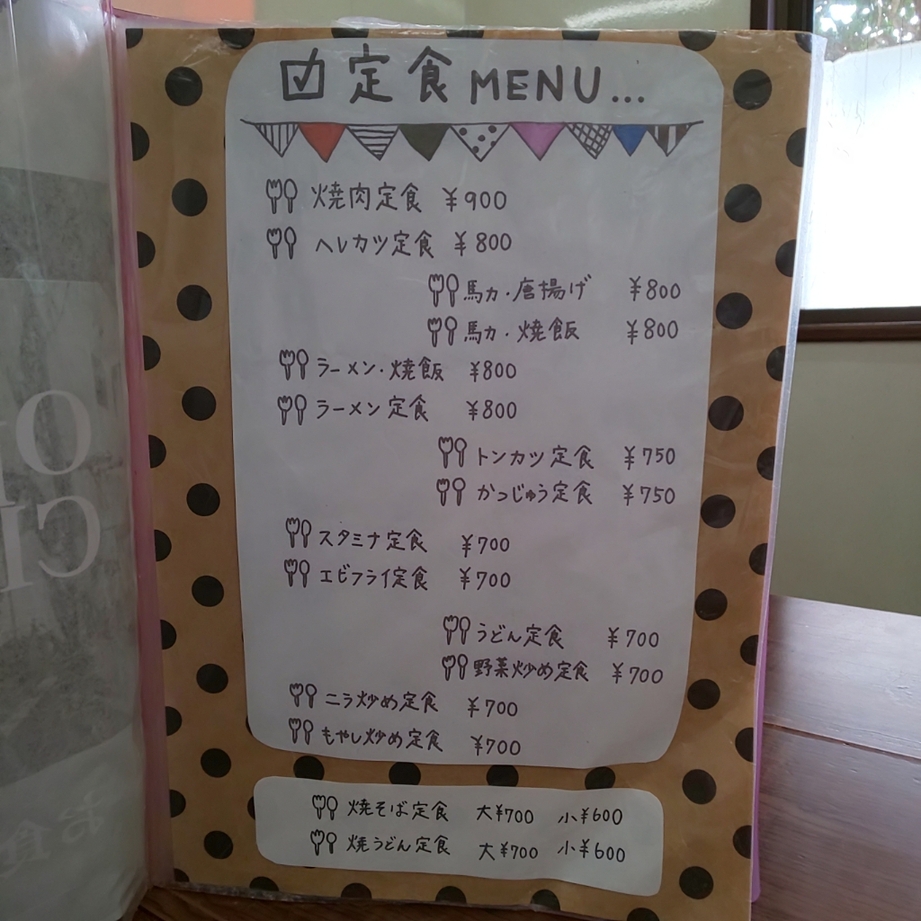 定食 MENU...
焼肉定食 ¥900
ヘレカツ定食 ¥800
馬カ・唐揚げ ¥800
馬カ・焼飯 ¥800
ラーメン・焼飯 ¥800
ラーメン定食 ¥800
トンカツ定食 ¥750
かつじゅう定食 ¥750
スタミナ定食 ¥700
エビフライ定食 ¥700
うどん定食 ¥700
野菜炒め定食 ¥700
ニラ炒め定食 ¥700
もやし炒め定食 ¥700
焼そば定食 大¥700 小¥600
焼うどん定食 大¥700 小¥600